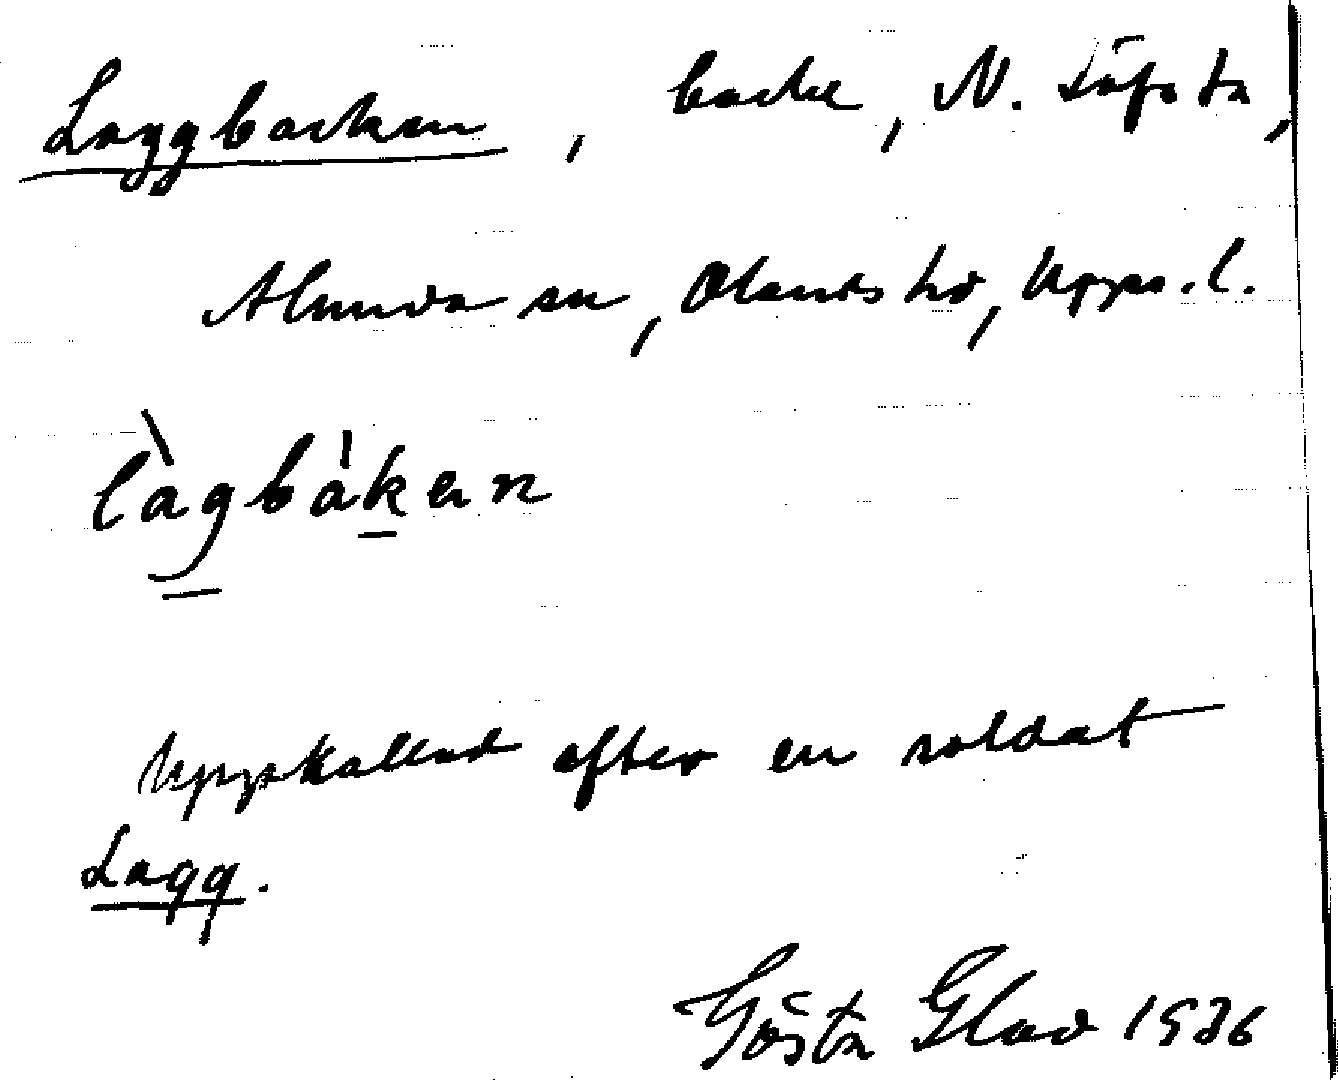 Laggbacken, backe, N. Löfsta,
Alunda sn, Olands hd, Upps. l.
làgbàkan
Uppkallad efter en soldat
Lagg.
Gösta Glad 1936